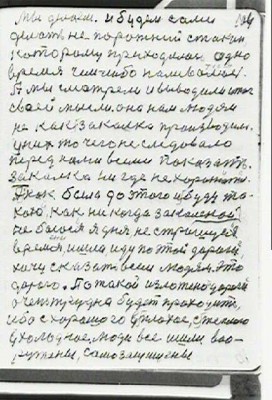 Мы делаем. и будем сами
делать не порожний стакан
которому приходилось одно
время чем либо наливаться.
А мы смотрели и выводили из
своей мысли. она нам людям
не как закалка производим.
у них то чего не следовало
перед нами всеми показать.
закалка ни где не хоронит.
Я как была до этого и буду та-
кою, как никогда закалкой
не боюсь я дня не страшуся
время, ишша иду по этой дороге,
хочу сказать всем людям. это
дорого. По такой дороге
очень трудно будет проходить,
ибо с хорошого у плохое, с теплого
у холодное, люди все шли воо-
ружены, самозащищены